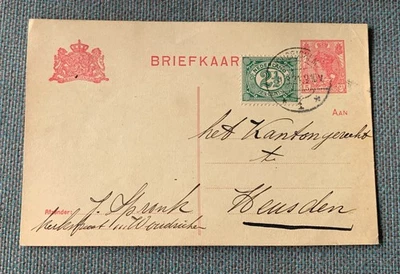 BRIEFKAAR
2½
AAN
het Kantongerecht
te
Heusden
Afzender:
J. Spronk
Kerkstraat Woudrichem